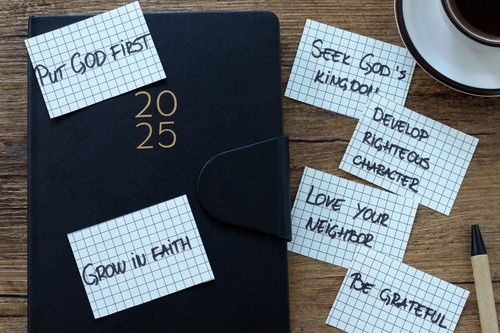 PUT GOD FIRST
20
25
GROW IN FAITH
SEEK GOD'S
KINGDOM
DEVELOP
RIGHTEOUS
CHARACTER
LOVE YOUR
NEIGHBOR
BE GRATEFUL